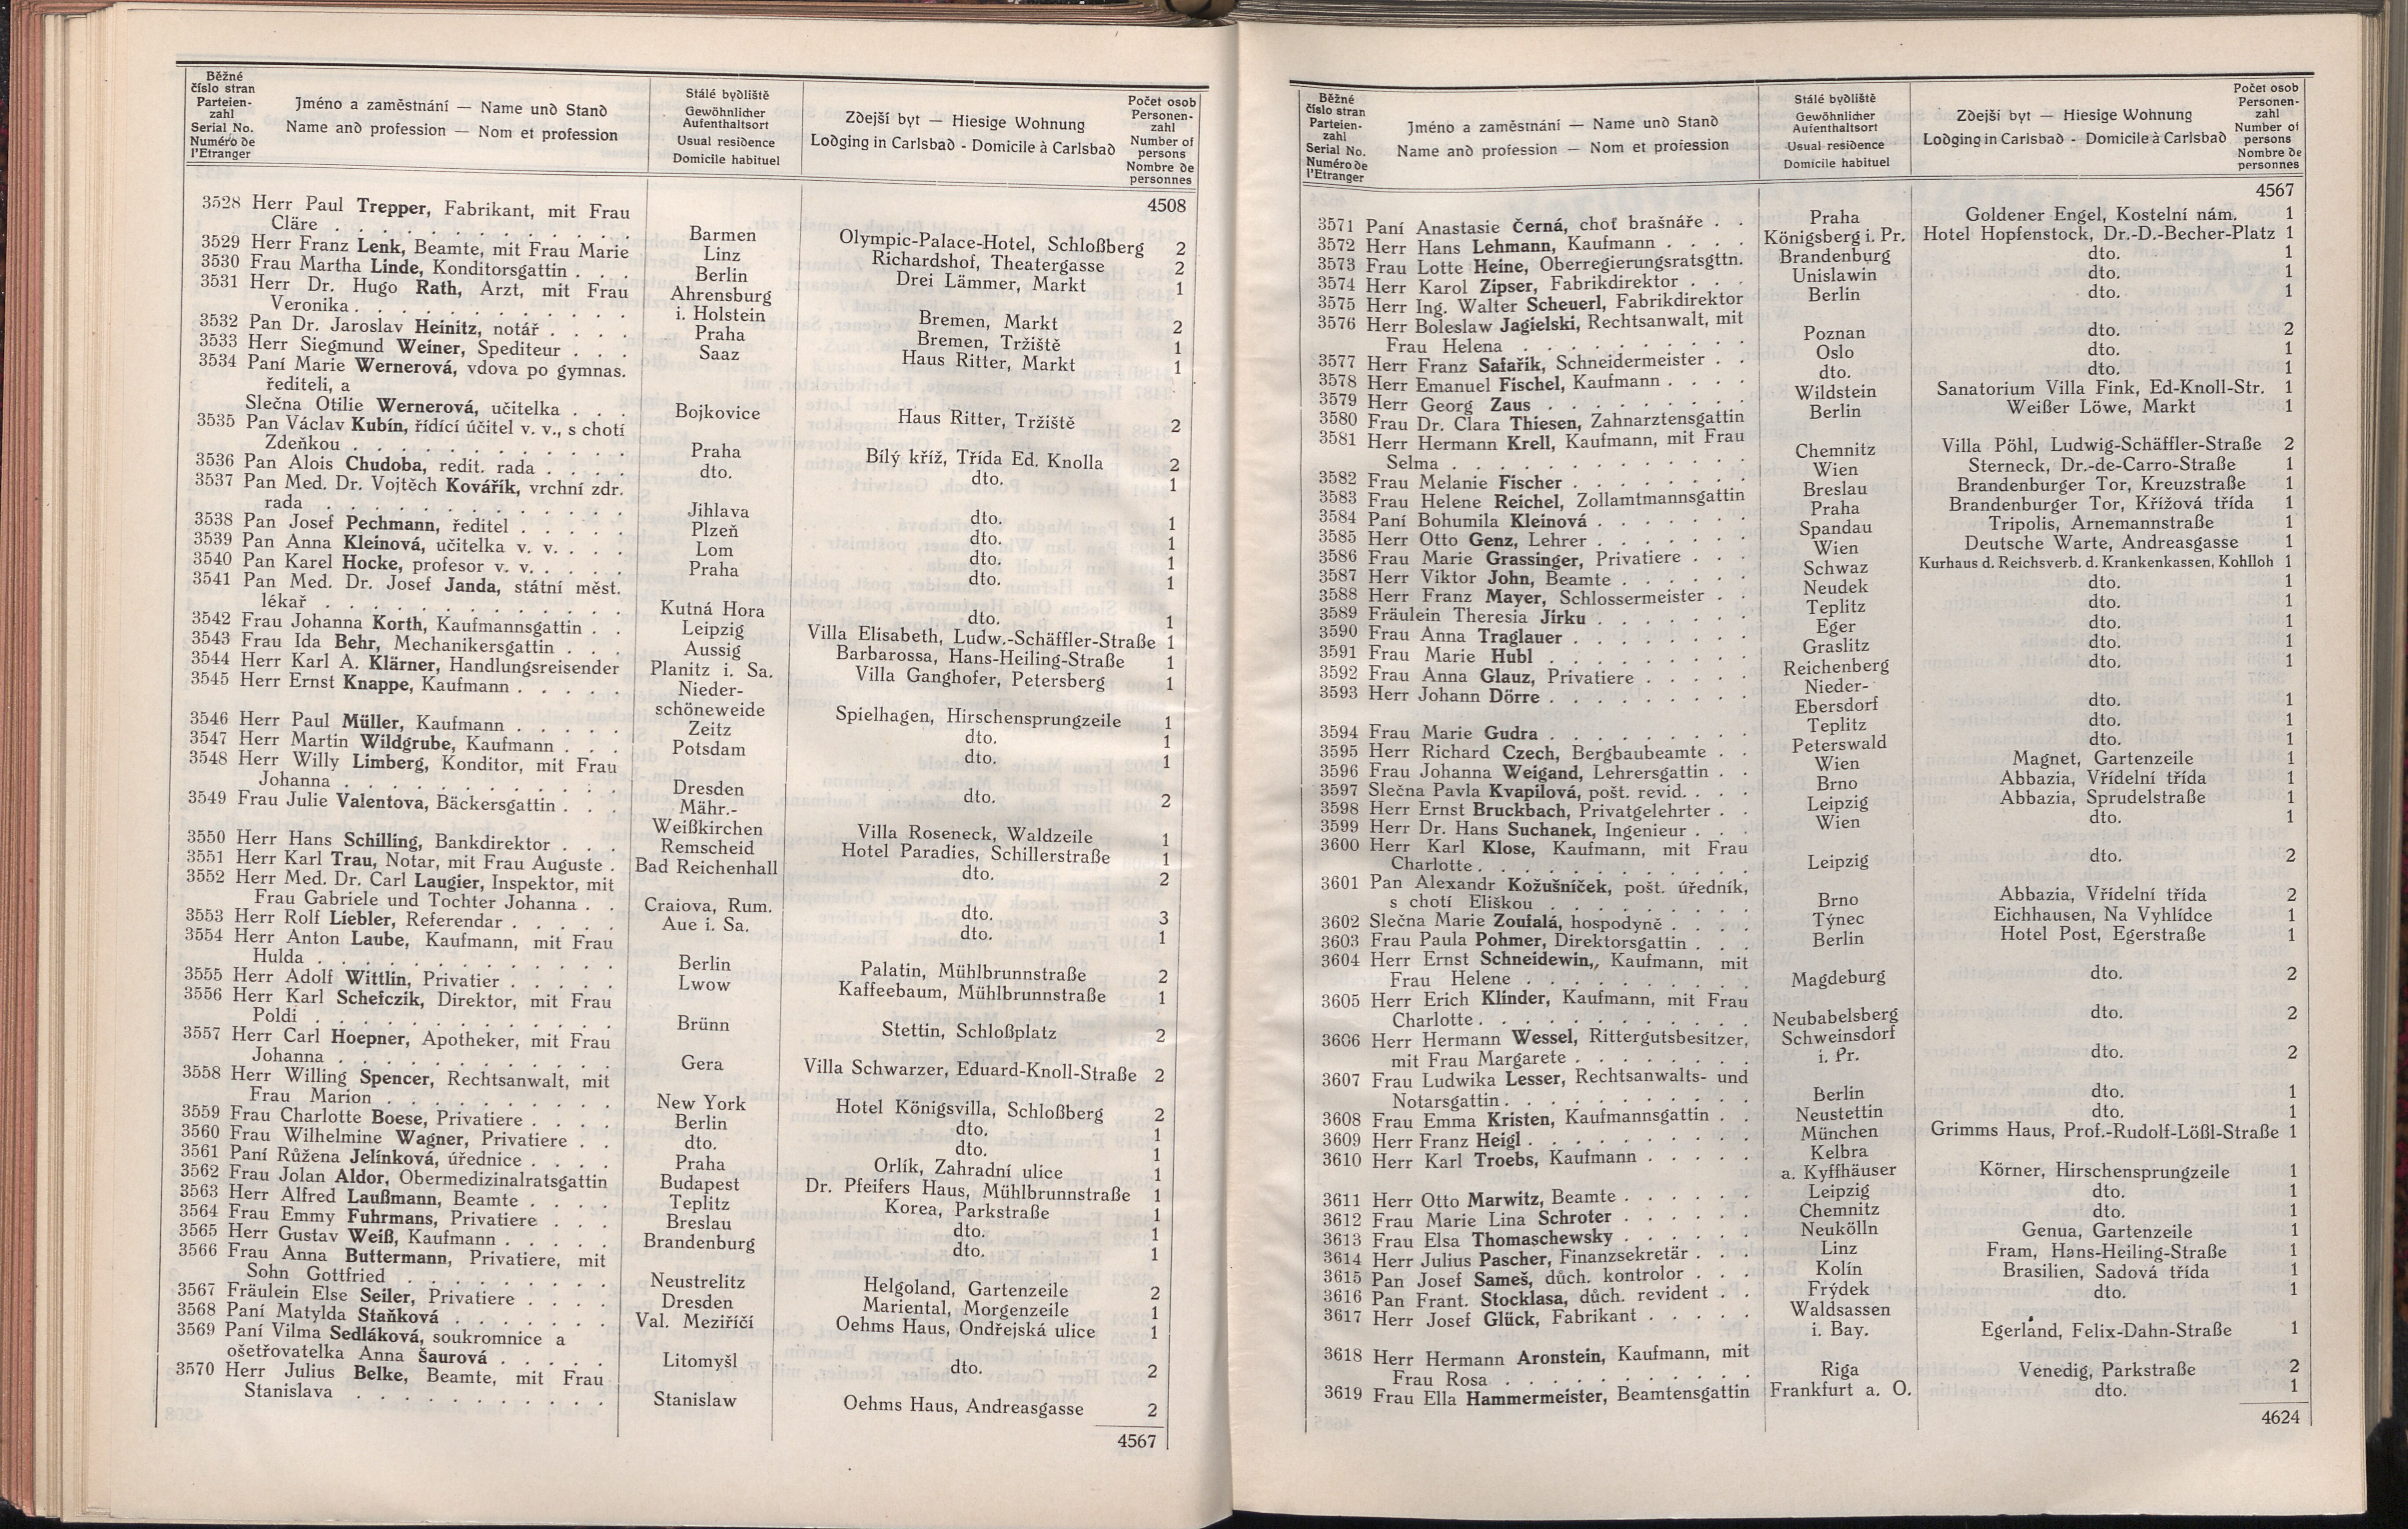 Běžné číslo stran
Parteien-zahl
Serial No.
Numéro de l'Etranger
Jméno a zaměstnání — Name und Stand
Name and profession — Nom et profession
Stálé bydliště
Gewöhnlicher Aufenthaltsort
Usual residence
Domicile habituel
Zdejší byt — Hiesige Wohnung
Lodging in Carlsbad - Domicile à Carlsbad
Počet osob
Personen-zahl
Number of persons
Nombre de personnes
4508
3528 Herr Paul Trepper, Fabrikant, mit Frau
Cläre . . . Barmen Olympic-Palace-Hotel, Schloßberg 2
3529 Herr Franz Lenk, Beamte, mit Frau Marie Linz Richardshof, Theatergasse 2
3530 Frau Martha Linde, Konditorsgattin . . . Berlin Drei Lämmer, Markt 1
3531 Herr Dr. Hugo Rath, Arzt, mit Frau Ahrensburg
Veronika . . . i. Holstein Bremen, Markt 2
3532 Pan Dr. Jaroslav Heinitz, notář . . . Praha Bremen, Tržiště 1
3533 Herr Siegmund Weiner, Spediteur . . . Saaz Haus Ritter, Markt 1
3534 Paní Marie Wernerová, vdova po gymnas.
řediteli, a
Slečna Otilie Wernerová, učitelka . . . Bojkovice Haus Ritter, Tržiště 2
3535 Pan Václav Kubín, řídící účitel v. v., s chotí
Zdeňkou . . . Praha Bílý kříž, Třída Ed. Knolla 2
3536 Pan Alois Chudoba, redit. rada . . . dto. dto. 1
3537 Pan Med. Dr. Vojtěch Kovářík, vrchní zdr.
rada . . . Jihlava dto. 1
3538 Pan Josef Pechmann, ředitel . . . Plzeň dto. 1
3539 Pan Anna Kleinová, učitelka v. v. . . . Lom dto. 1
3540 Pan Karel Hocke, profesor v. v. . . . Praha dto. 1
3541 Pan Med. Dr. Josef Janda, státní měst.
lékař . . . Kutná Hora dto. 1
3542 Frau Johanna Korth, Kaufmannsgattin . . Leipzig Villa Elisabeth, Ludw.-Schäffler-Straße 1
3543 Frau Ida Behr, Mechanikersgattin . . . Aussig Barbarossa, Hans-Heiling-Straße 1
3544 Herr Karl A. Klärner, Handlungsreisender Planitz i. Sa. Villa Ganghofer, Petersberg 1
3545 Herr Ernst Knappe, Kaufmann . . . Nieder-
schöneweide Spielhagen, Hirschensprungzeile 1
3546 Herr Paul Müller, Kaufmann . . . Zeitz dto. 1
3547 Herr Martin Wildgrube, Kaufmann . . . Potsdam dto. 1
3548 Herr Willy Limberg, Konditor, mit Frau
Johanna . . . Dresden dto. 2
3549 Frau Julie Valentova, Bäckersgattin . . . Mähr.-
Weißkirchen Villa Roseneck, Waldzeile 1
3550 Herr Hans Schilling, Bankdirektor . . . Remscheid Hotel Paradies, Schillerstraße 1
3551 Herr Karl Trau, Notar, mit Frau Auguste . Bad Reichenhall dto. 2
3552 Herr Med. Dr. Carl Laugier, Inspektor, mit
Frau Gabriele und Tochter Johanna . . Craiova, Rum. dto. 3
3553 Herr Rolf Liebler, Referendar . . . Aue i. Sa. dto. 1
3554 Herr Anton Laube, Kaufmann, mit Frau
Hulda . . . Berlin Palatin, Mühlbrunnstraße 2
3555 Herr Adolf Wittlin, Privatier . . . Lwow Kaffeebaum, Mühlbrunnstraße 1
3556 Herr Karl Schefczik, Direktor, mit Frau
Poldi . . . Brünn Stettin, Schloßplatz 2
3557 Herr Carl Hoepner, Apotheker, mit Frau
Johanna . . . Gera Villa Schwarzer, Eduard-Knoll-Straße 2
3558 Herr Willing Spencer, Rechtsanwalt, mit
Frau Marion . . . New York Hotel Königsvilla, Schloßberg 2
3559 Frau Charlotte Boese, Privatiere . . . Berlin dto. 1
3560 Frau Wilhelmine Wagner, Privatiere . . dto. dto. 1
3561 Paní Růžena Jelínková, úřednice . . . Praha Orlík, Zahradní ulice 1
3562 Frau Jolan Aldor, Obermedizinalratsgattin Budapest Dr. Pfeifers Haus, Mühlbrunnstraße 1
3563 Herr Alfred Laußmann, Beamte . . . Teplitz Korea, Parkstraße 1
3564 Frau Emmy Fuhrmans, Privatiere . . . Breslau dto. 1
3565 Herr Gustav Weiß, Kaufmann . . . Brandenburg dto. 1
3566 Frau Anna Buttermann, Privatiere, mit
Sohn Gottfried . . . Neustrelitz Helgoland, Gartenzeile 2
3567 Fräulein Else Seiler, Privatiere . . . Dresden Mariental, Morgenzeile 1
3568 Paní Matylda Staňková . . . Val. Meziříčí Oehms Haus, Ondřejská ulice 1
3569 Paní Vilma Sedláková, soukromnice a
ošetřovatelka Anna Šaurová . . . Litomyšl dto. 2
3570 Herr Julius Belke, Beamte, mit Frau
Stanislava . . . Stanislaw Oehms Haus, Andreasgasse 2
4567
Běžné číslo stran
Parteien-zahl
Serial No.
Numéro de l'Etranger
Jméno a zaměstnání — Name und Stand
Name and profession — Nom et profession
Stálé bydliště
Gewöhnlicher Aufenthaltsort
Usual residence
Domicile habituel
Zdejší byt — Hiesige Wohnung
Lodging in Carlsbad - Domicile à Carlsbad
Počet osob
Personen-zahl
Number of persons
Nombre de personnes
4567
3571 Paní Anastasie Černá, choť brašnáře . . Praha Goldener Engel, Kostelní nám. 1
3572 Herr Hans Lehmann, Kaufmann . . . Königsberg i. Pr. Hotel Hopfenstock, Dr.-D.-Becher-Platz 1
3573 Frau Lotte Heine, Oberregierungsratsgttn. Brandenburg dto. 1
3574 Herr Karol Zipser, Fabrikdirektor . . . Unislawin dto. 1
3575 Herr Ing. Walter Scheuerl, Fabrikdirektor Berlin dto. 1
3576 Herr Boleslaw Jagielski, Rechtsanwalt, mit
Frau Helena . . . Poznan dto. 2
3577 Herr Franz Safařik, Schneidermeister . . Oslo dto. 1
3578 Herr Emanuel Fischel, Kaufmann . . . dto. dto. 1
3579 Herr Georg Zaus . . . Wildstein Sanatorium Villa Fink, Ed-Knoll-Str. 1
3580 Frau Dr. Clara Thiesen, Zahnarztensgattin Berlin Weißer Löwe, Markt 1
3581 Herr Hermann Krell, Kaufmann, mit Frau
Selma . . . Chemnitz Villa Pöhl, Ludwig-Schäffler-Straße 2
3582 Frau Melanie Fischer . . . Wien Sterneck, Dr.-de-Carro-Straße 1
3583 Frau Helene Reichel, Zollamtmannsgattin Breslau Brandenburger Tor, Kreuzstraße 1
3584 Paní Bohumila Kleinová . . . Praha Brandenburger Tor, Křížová třída 1
3585 Herr Otto Genz, Lehrer . . . Spandau Tripolis, Arnemannstraße 1
3586 Frau Marie Grassinger, Privatiere . . . Wien Deutsche Warte, Andreasgasse 1
3587 Herr Viktor John, Beamte . . . Schwaz Kurhaus d. Reichsverb. d. Krankenkassen, Kohlloh 1
3588 Herr Franz Mayer, Schlossermeister . . Neudek dto. 1
3589 Fräulein Theresia Jirku . . . Teplitz dto. 1
3590 Frau Anna Traglauer . . . Eger dto. 1
3591 Frau Marie Hubl . . . Graslitz dto. 1
3592 Frau Anna Glauz, Privatiere . . . Reichenberg dto. 1
3593 Herr Johann Dörre . . . Nieder-
Ebersdorf dto. 1
3594 Frau Marie Gudra . . . Teplitz dto. 1
3595 Herr Richard Czech, Bergbaubeamte . . Peterswald dto. 1
3596 Frau Johanna Weigand, Lehrersgattin . . Wien Magnet, Gartenzeile 1
3597 Slečna Pavla Kvapilová, pošt. revid. . . . Brno Abbazia, Vřídelní třída 1
3598 Herr Ernst Bruckbach, Privatgelehrter . . Leipzig Abbazia, Sprudelstraße 1
3599 Herr Dr. Hans Suchanek, Ingenieur . . . Wien dto. 1
3600 Herr Karl Klose, Kaufmann, mit Frau
Charlotte . . . Leipzig dto. 2
3601 Pan Alexandr Kožušníček, pošt. úředník,
s chotí Eliškou . . . Brno Abbazia, Vřídelní třída 2
3602 Slečna Marie Zoufalá, hospodyně . . . Týnec Eichhausen, Na Vyhlídce 1
3603 Frau Paula Pohmer, Direktorsgattin . . . Berlin Hotel Post, Egerstraße 1
3604 Herr Ernst Schneidewin,, Kaufmann, mit
Frau Helene . . . Magdeburg dto. 2
3605 Herr Erich Klinder, Kaufmann, mit Frau
Charlotte . . . Neubabelsberg dto. 2
3606 Herr Hermann Wessel, Rittergutsbesitzer, Schweinsdorf
mit Frau Margarete . . . i. Pr. dto. 2
3607 Frau Ludwika Lesser, Rechtsanwalts- und
Notarsgattin . . . Berlin dto. 1
3608 Frau Emma Kristen, Kaufmannsgattin . . Neustettin dto. 1
3609 Herr Franz Heigl . . . München Grimms Haus, Prof.-Rudolf-Lößl-Straße 1
3610 Herr Karl Troebs, Kaufmann . . . Kelbra
a. Kyffhäuser Körner, Hirschensprungzeile 1
3611 Herr Otto Marwitz, Beamte . . . Leipzig dto. 1
3612 Frau Marie Lina Schroter . . . Chemnitz dto. 1
3613 Frau Elsa Thomaschewsky . . . Neukölln Genua, Gartenzeile 1
3614 Herr Julius Pascher, Finanzsekretär . . . Linz Fram, Hans-Heiling-Straße 1
3615 Pan Josef Sameš, důch. kontrolor . . . Kolín Brasilien, Sadová třída 1
3616 Pan Frant. Stocklasa, důch. revident . . Frýdek dto. 1
3617 Herr Josef Glück, Fabrikant . . . Waldsassen
i. Bay. Egerland, Felix-Dahn-Straße 1
3618 Herr Hermann Aronstein, Kaufmann, mit
Frau Rosa . . . Riga Venedig, Parkstraße 2
3619 Frau Ella Hammermeister, Beamtensgattin Frankfurt a. O. dto. 1
4624